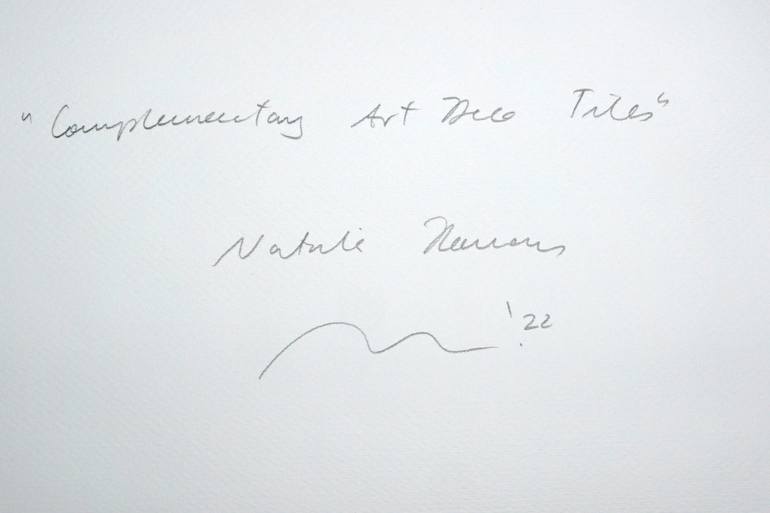 "Complementary Art Deco Tiles"
Natalie
'22